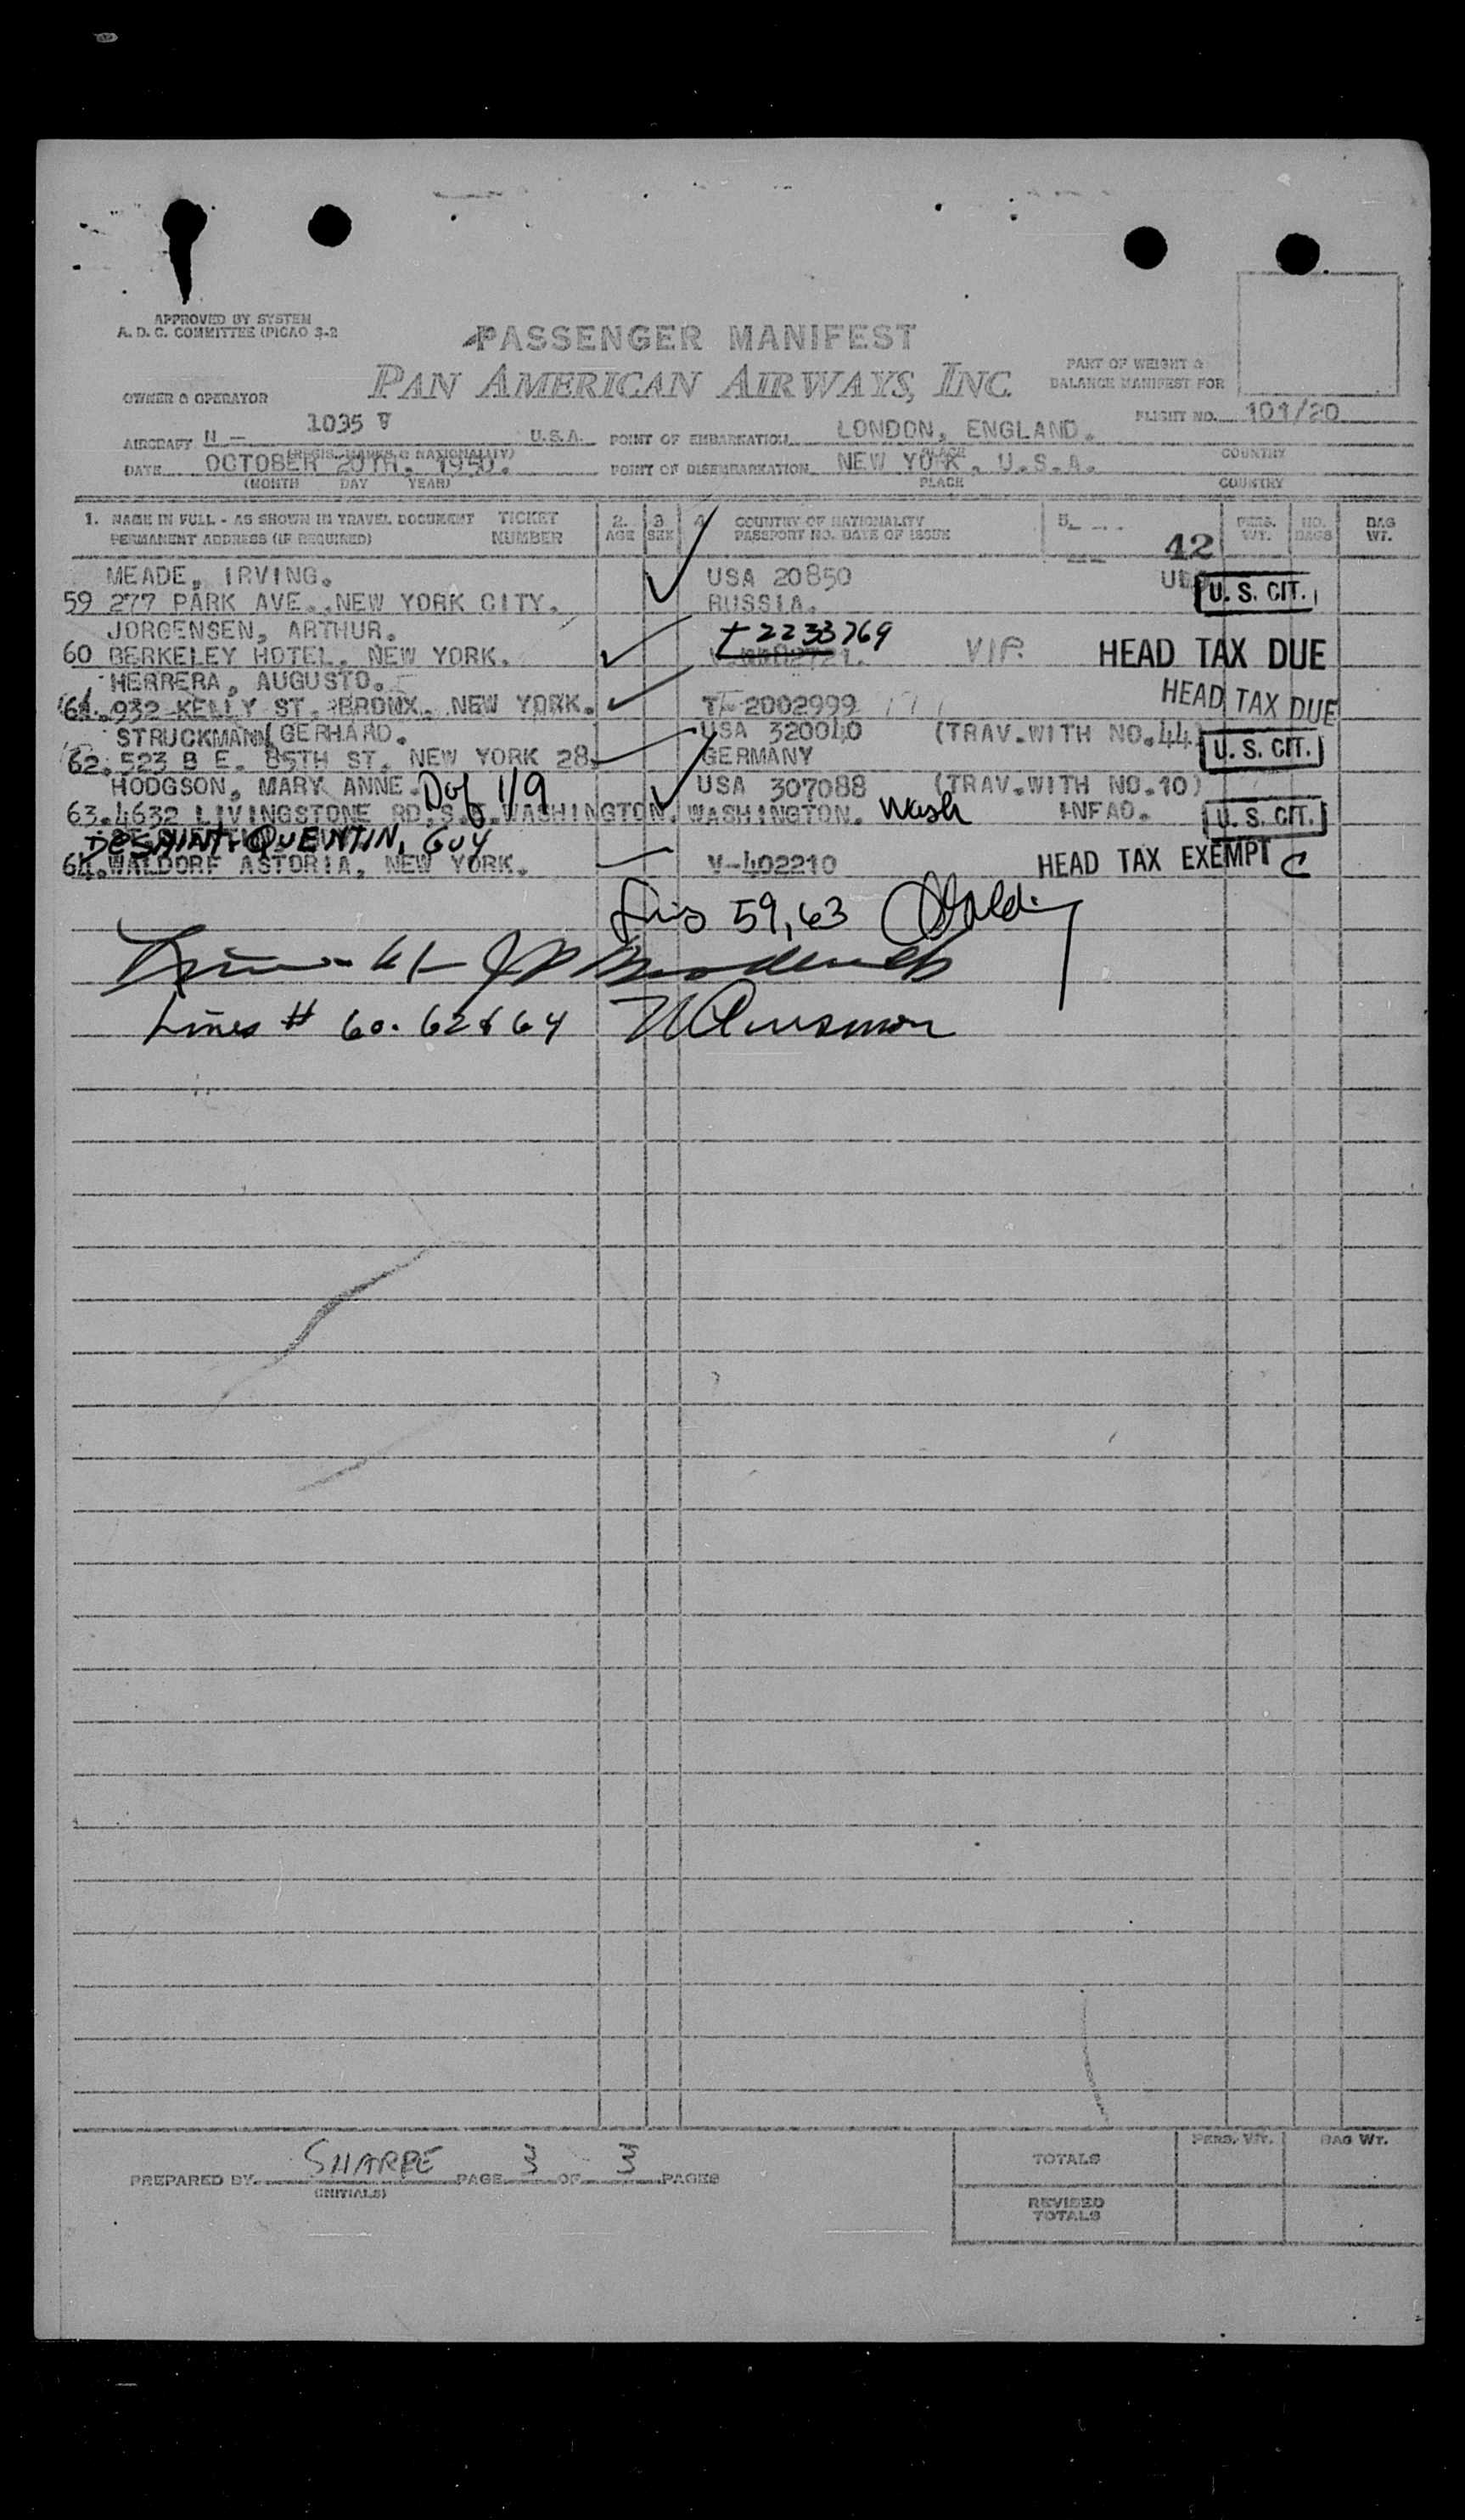 APPROVED BY SYSTEM
A. D. C. COMMITTEE (PICAO 3-2
PASSENGER MANIFEST
PAN AMERICAN AIRWAYS, INC.
PART OF WEIGHT &
BALANCE MANIFEST FOR
OWNER & OPERATOR
FLIGHT NO. 101/20
AIRCRAFT N - 1035 V U.S.A. POINT OF EMBARKATION LONDON, ENGLAND.
(REGIS. MARKS & NATIONALITY) PLACE COUNTRY
DATE OCTOBER 20TH, 1950. POINT OF DISEMBARKATION NEW YORK, U.S.A.
(MONTH DAY YEAR) PLACE COUNTRY
1. NAME IN FULL - AS SHOWN IN TRAVEL DOCUMENT TICKET 2. 3. 4. COUNTRY OF NATIONALITY 5. PERS. NO. BAG
PERMANENT ADDRESS (IF REQUIRED) NUMBER AGE SEX PASSPORT NO. DATE OF ISSUE WT. BAGS WT.
42
MEADE, IRVING. USA 20850 U. S. CIT.
59 277 PARK AVE., NEW YORK CITY. RUSSIA.
JORGENSEN, ARTHUR. T 2233769
60 BERKELEY HOTEL, NEW YORK. VIP. HEAD TAX DUE
HERRERA, AUGUSTO. HEAD TAX DUE
61. 932 KELLY ST. BRONX. NEW YORK. T- 2002999
STRUCKMANN GERHARD. USA 320040 (TRAV.WITH NO.44
62. 523 B E. 85TH ST. NEW YORK 28. GERMANY U. S. CIT.
HODGSON, MARY ANNE. Dof 1/9 USA 307088 (TRAV.WITH NO.10)
63. 4632 LIVINGSTONE RD, S.E. WASHINGTON. WASHINGTON. Wash INFAO. U. S. CIT.
DESAINT-QUENTIN, GUY
64. WALDORF ASTORIA, NEW YORK. V-402210 HEAD TAX EXEMPT C
59, 63
Lines # 60. 62 & 64
PREPARED BY SHARPE PAGE 3 OF 3 PAGES
(INITIALS)
PERS. WT. BAG WT.
TOTALS
REVISED
TOTALS